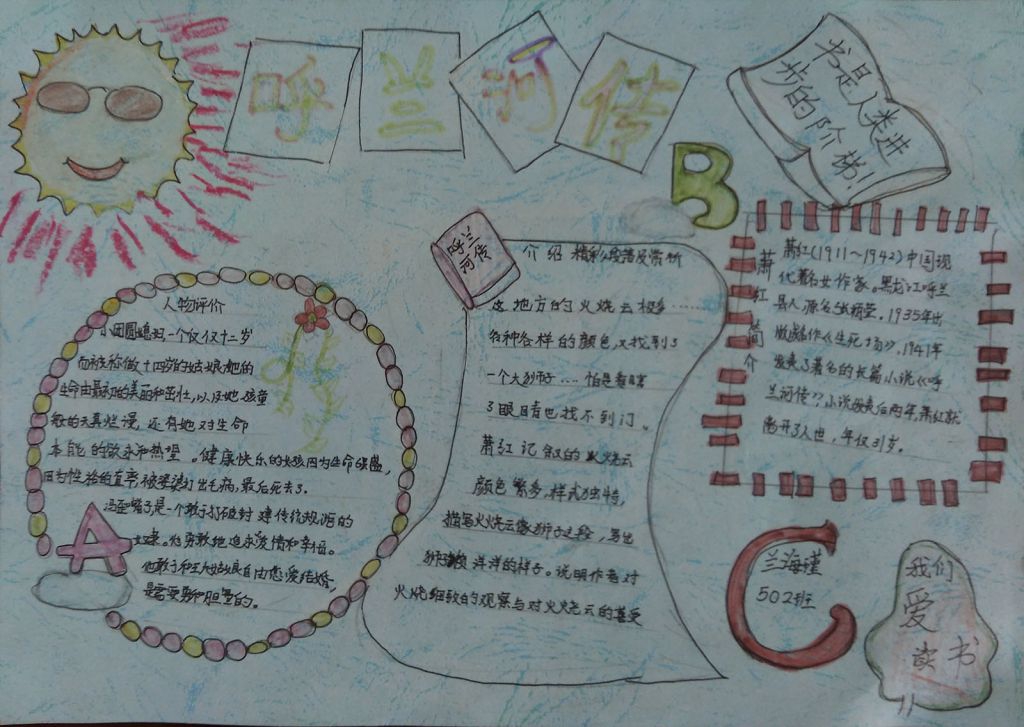 呼兰河传
书是人类进
步的阶梯!
B
呼兰
河传
介绍精彩段落及赏析
这地方的火烧云极多……
各种各样的颜色,又找到了
一个大狮子……怕是看瞎
了眼睛也找不到门。
萧红记叙的火烧云
颜色繁多,样式独特,
描写火烧云像狮子这段,写出
洋洋的样子。说明作者对
火烧细致的观察与对火烧云的喜爱
萧红简介
萧红(1911~1942)中国现
代著名女作家。黑龙江呼兰
县人原名张莹。1935年出
版成作《生死场》,1941年
发表了著名的长篇小说《呼
兰河传》,小说发表后两年,萧红就
离开了人世,年仅31岁。
人物评价
小团圆媳妇,一个仅仅十二岁
而被称做十四岁的姑娘她的
生命由最初的美丽和茁壮,以及她孩童
般的天真烂漫,还有她对生命
本能的欲求和热望。健康快乐的女孩因为生命
因为性格的直率被婆婆打出毛病,最后死去了。
冯歪嘴子是一个敢于打破封建传统规
他勇敢地追求爱情和幸福。
他敢于和王大姑娘自由恋爱结婚,
是需要勇和胆量的。
A
C
兰海瑾
502班
我们
爱
读书